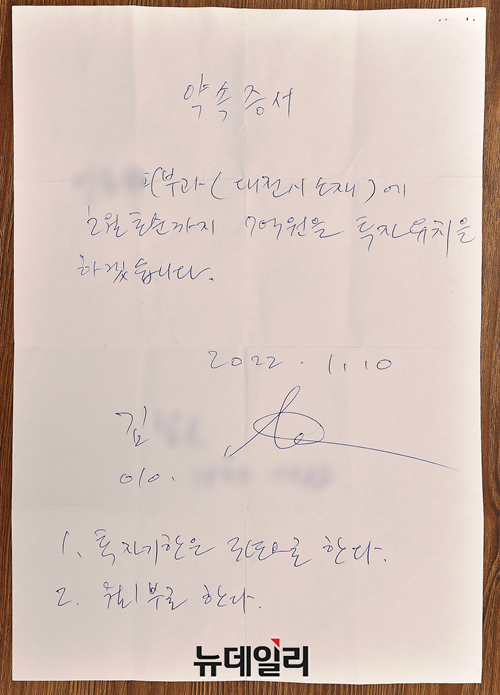 약속증서
피부과(대전시 소재)에
2월초순까지 7억원을 투자유치를
하겠습니다.
2022. 1. 10
김
010.
1. 투자기한은 으로 한다.
2. 한다.
뉴데일리